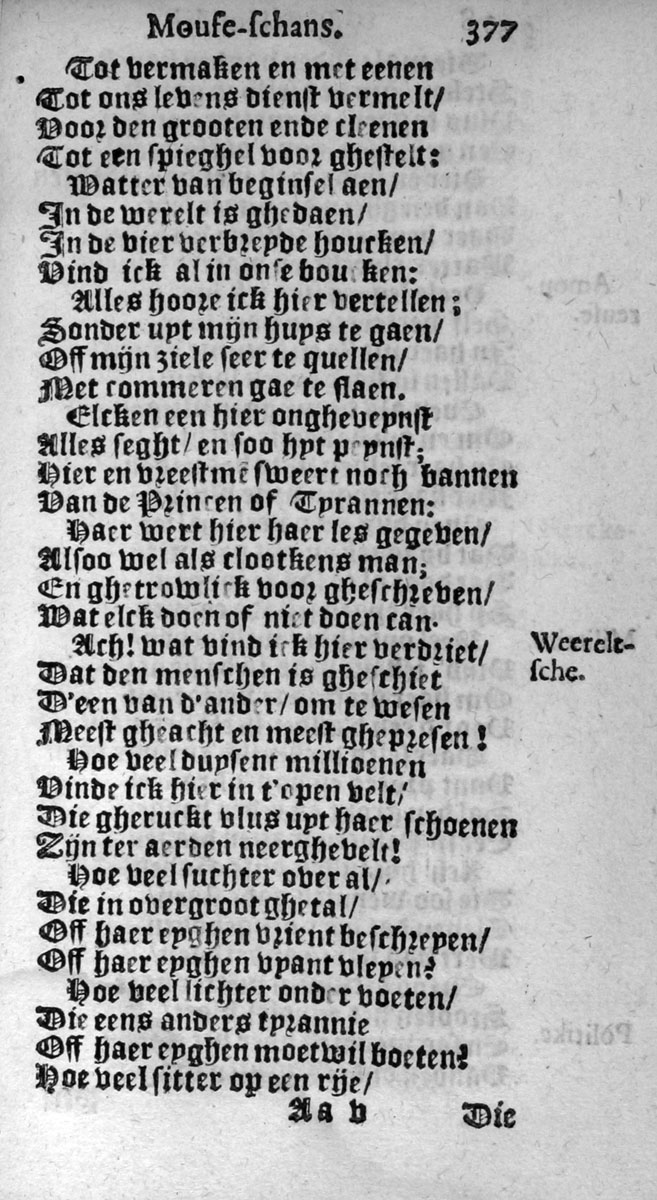 Mouse-schans. 377
Tot vermaken en met eenen
Tot ons levens dienst vermelt/
Voor den grooten ende cleenen
Tot een spieghel voor ghestelt:
Watter van beginsel aen/
In de werelt is ghedaen/
In de vier verbreyde houcken/
Vind ick al in onse boucken:
Alles hoore ick hier vertellen;
Sonder uyt mijn huys te gaen/
Off mijn ziele seer te quellen/
Met commeren gae te slaen.
Elcken een hier ongheveynst
Alles seght/ en soo hyt peynst;
Hier en vreestmē sweert noch bannen
Van de Princen of Tyrannen:
Haer wert hier haer les gegeven/
Alsoo wel als clootkens man;
En ghetrowlick voor gheschreven/
Wat elck doen of niet doen can.
Ach! wat vind ick hier verdriet/
Weerelt-
sche.
Dat den menschen is gheschiet
D'een van d'ander/ om te wesen
Meest gheacht en meest ghepresen!
Hoe veel duysent millioenen
Vinde ick hier in t'open velt/
Die gheruckt vlus uyt haer schoenen
Zijn ter aerden neerghevelt!
Hoe veel suchter over al/
Die in overgroot ghetal/
Off haer eyghen vrient beschreyen/
Off haer eyghen vyant vleyen?
Hoe veel lichter onder voeten/
Die eens anders tyrannie
Off haer eyghen moetwil boeten!
Hoe veel sitter op een rije/
Aa v Die